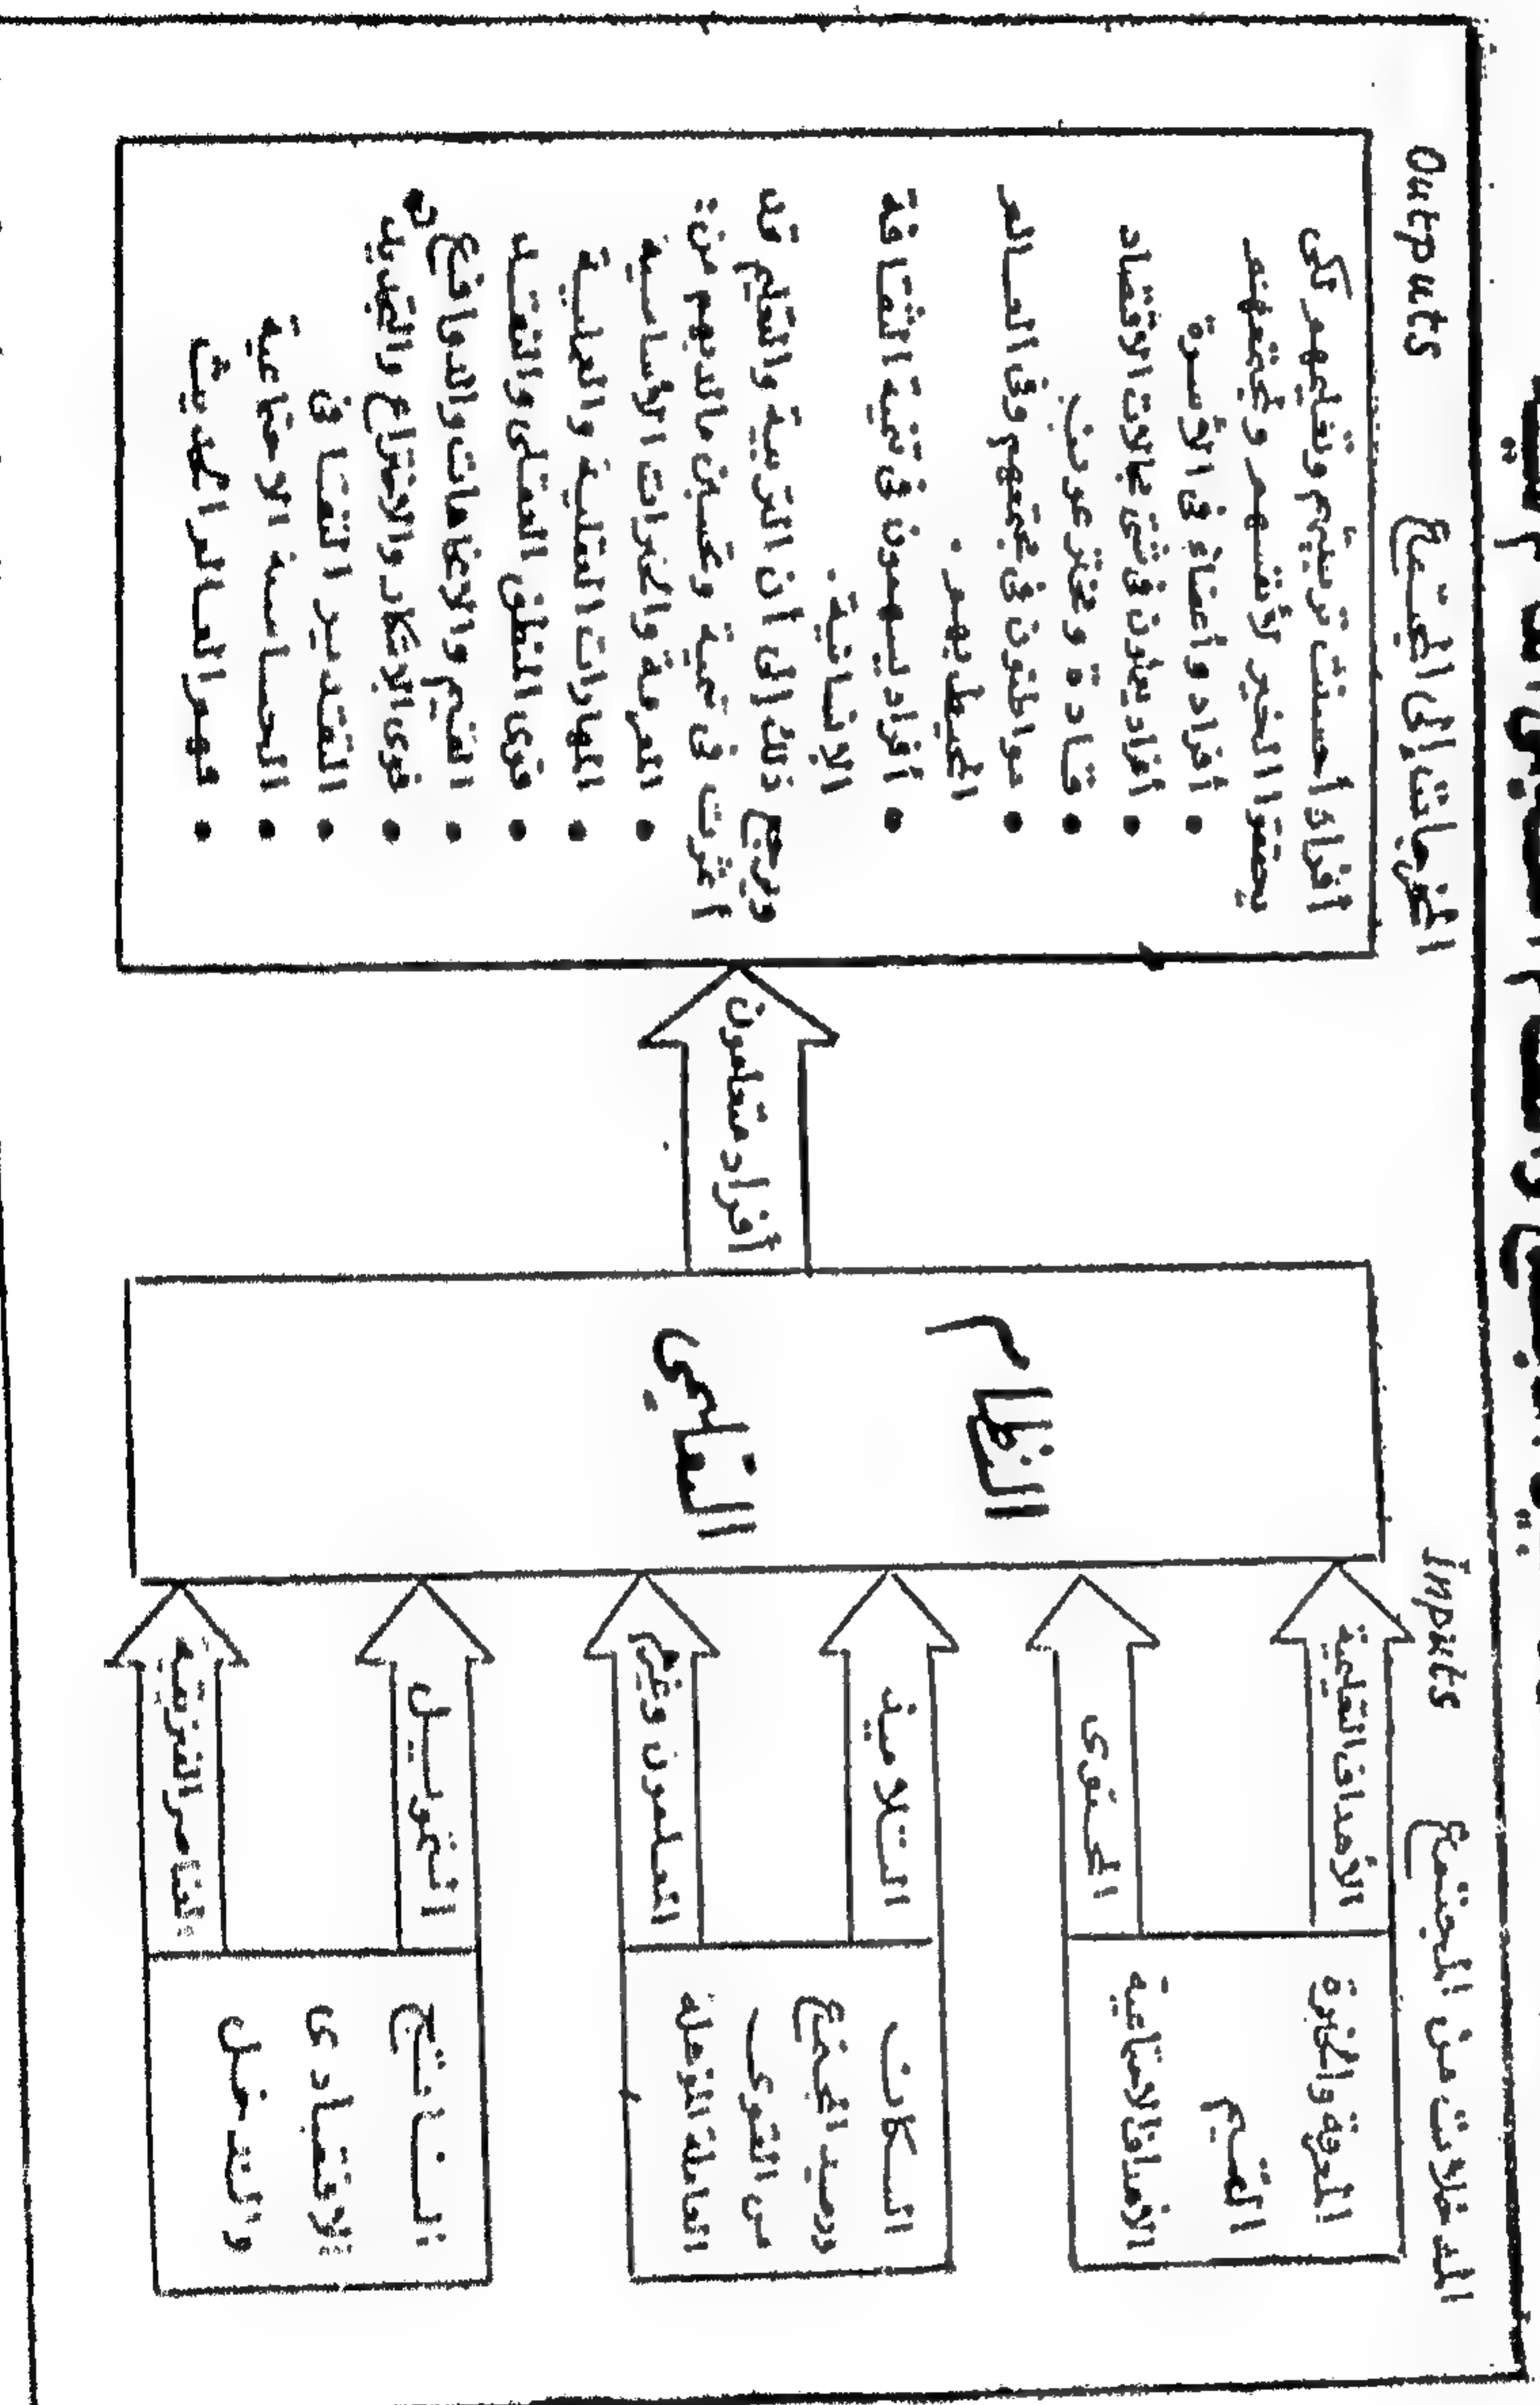 المدخلات من المجتمع Inputs
المعرفة والخبرة
القيم
الأهداف الاجتماعية
الأهداف التعليمية
المحتوى
السكان
ورصيد المجتمع
من القوى
العاملة المؤهلة
التلاميذ
المعلمون وغيرهم
الناتج
الاقتصادى
والدخل
التمويل
النظام
التعليمى
أفراد متعلمون
المخرجات إلى المجتمع Outputs
أفراد أحسنت تربيتهم وتعليمهم لكى
يحققوا الخير لأنفسهم ولمجتمعهم
• أفراد وأعضاء فى الأسرة
• أفراد يعملون فى شتى مجالات الاقتصاد
• قادة ومخترعون
• مواطنون فى مجتمعهم وفى العالم
المحيط بهم .
• أفراد يسهمون فى تنمية الثقافة
الإنسانية .
ويرجع ذلك إلى أن التربية والتعليم قد
أثرت فى تنمية وتحسين مالديهم من :
• المعرفة والخبرات الأساسية
• المهارات العقلية والعملية
• قوى المنطق العقلى والنقد
• القيم والاتجاهات والدوافع
• قوى الابتكار والاختراع والتجديد
• التقدير الثقافى
• الحساسية الاجتماعية
• فهم العالم الحديث